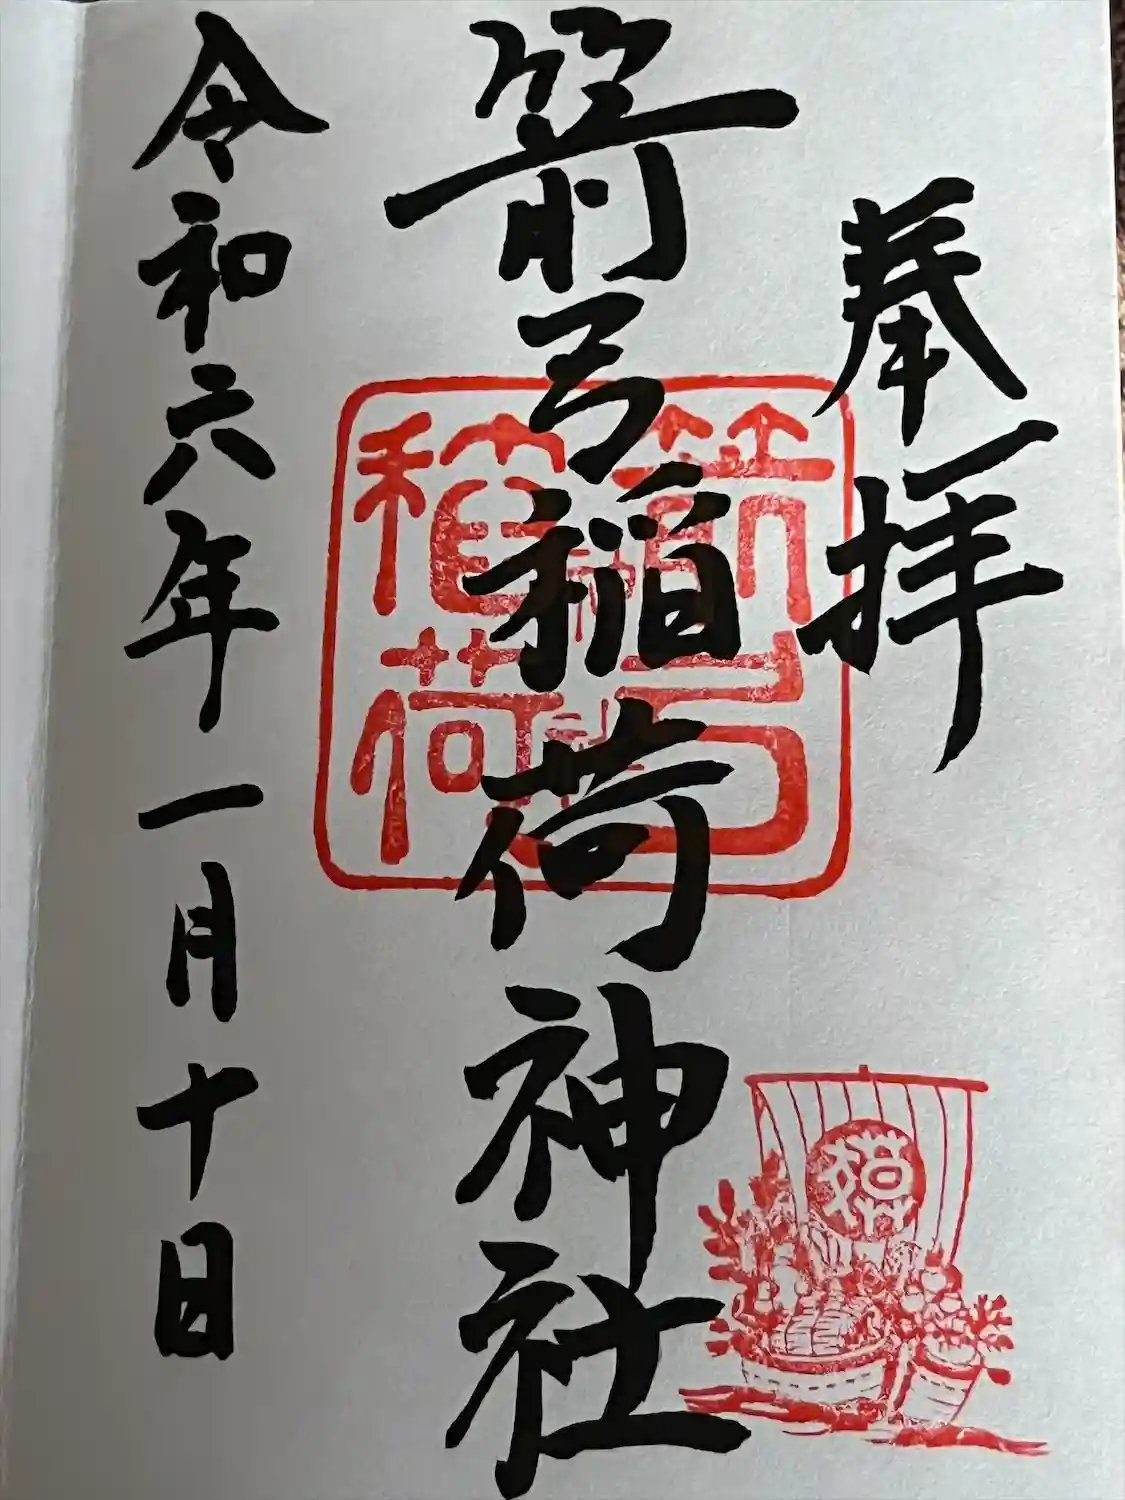 奉拝
箭弓稲荷神社
令和六年一月十日
箭弓
稲荷